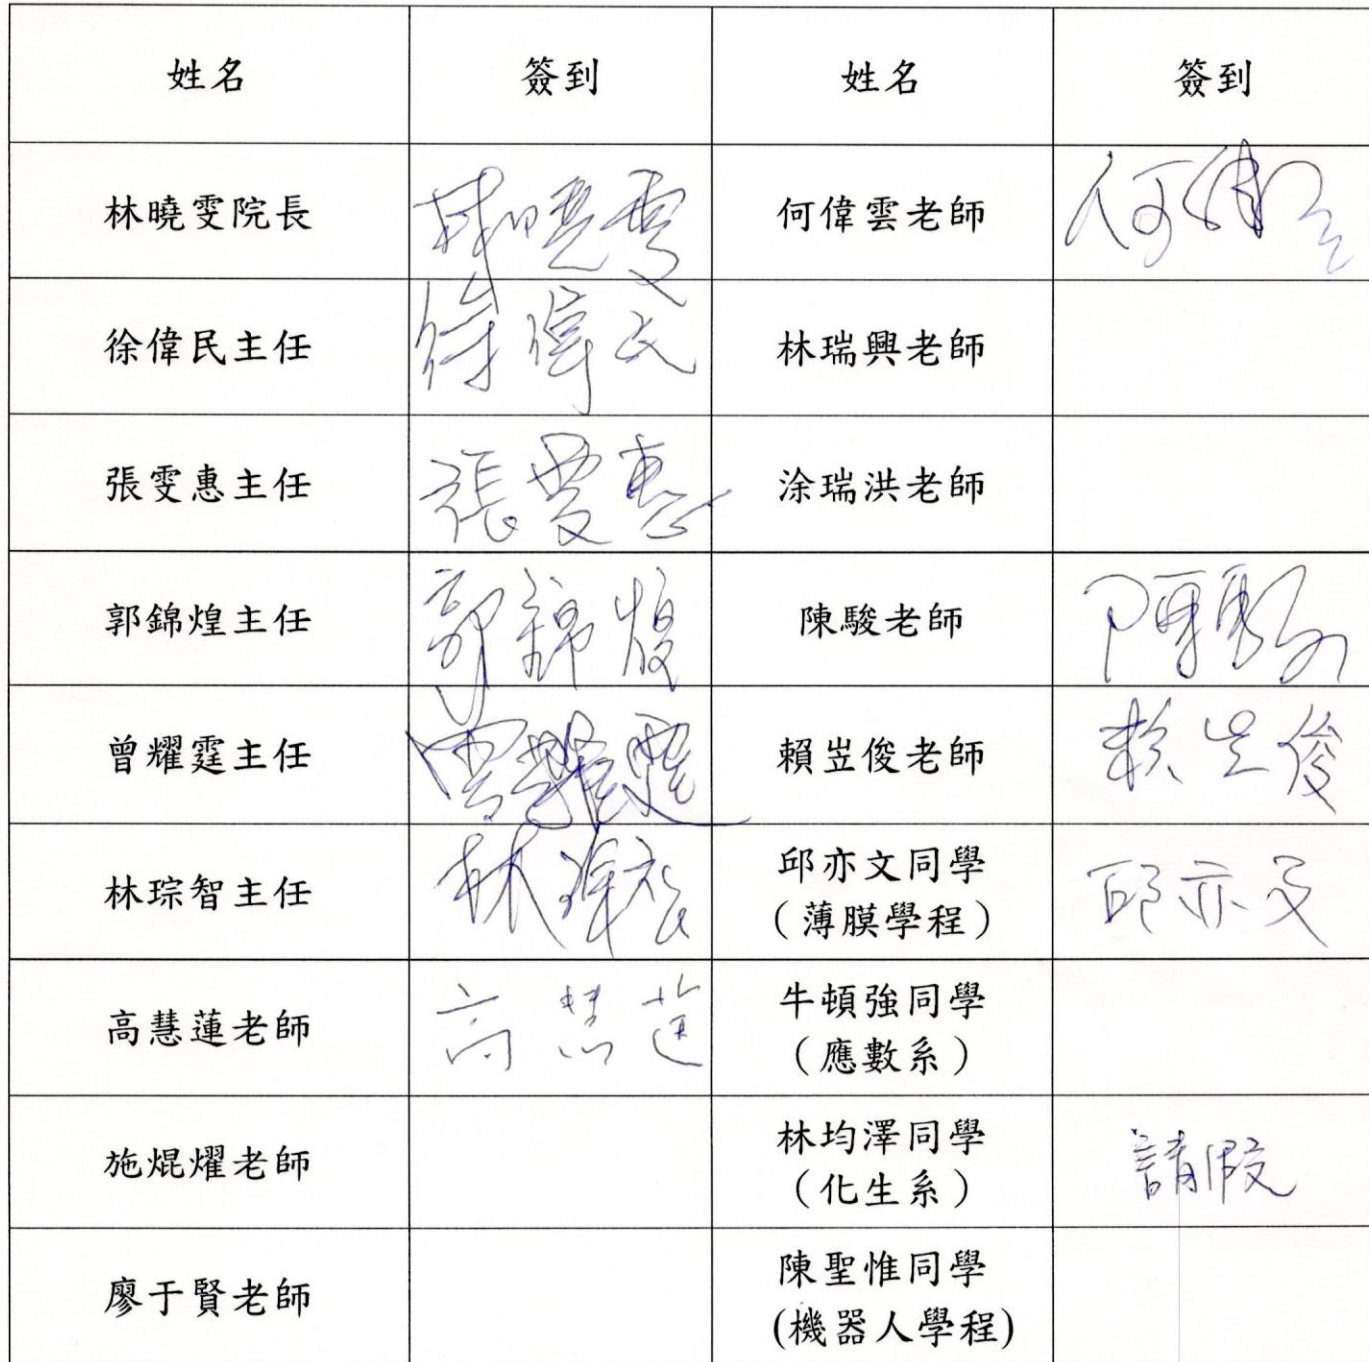 姓名 簽到 姓名 簽到
林曉雯院長 林曉雯 何偉雲老師 何偉雲
徐偉民主任 徐偉民 林瑞興老師
張雯惠主任 張雯惠 涂瑞洪老師
郭錦煌主任 郭錦煌 陳駿老師 陳駿
曾耀霆主任 曾耀霆 賴岦俊老師 賴岦俊
林琮智主任 林 邱亦文同學 邱亦文
（薄膜學程）
高慧蓮老師 高慧蓮 牛頓強同學
（應數系）
施焜燿老師 林均澤同學 請假
（化生系）
廖于賢老師 陳聖惟同學
(機器人學程)